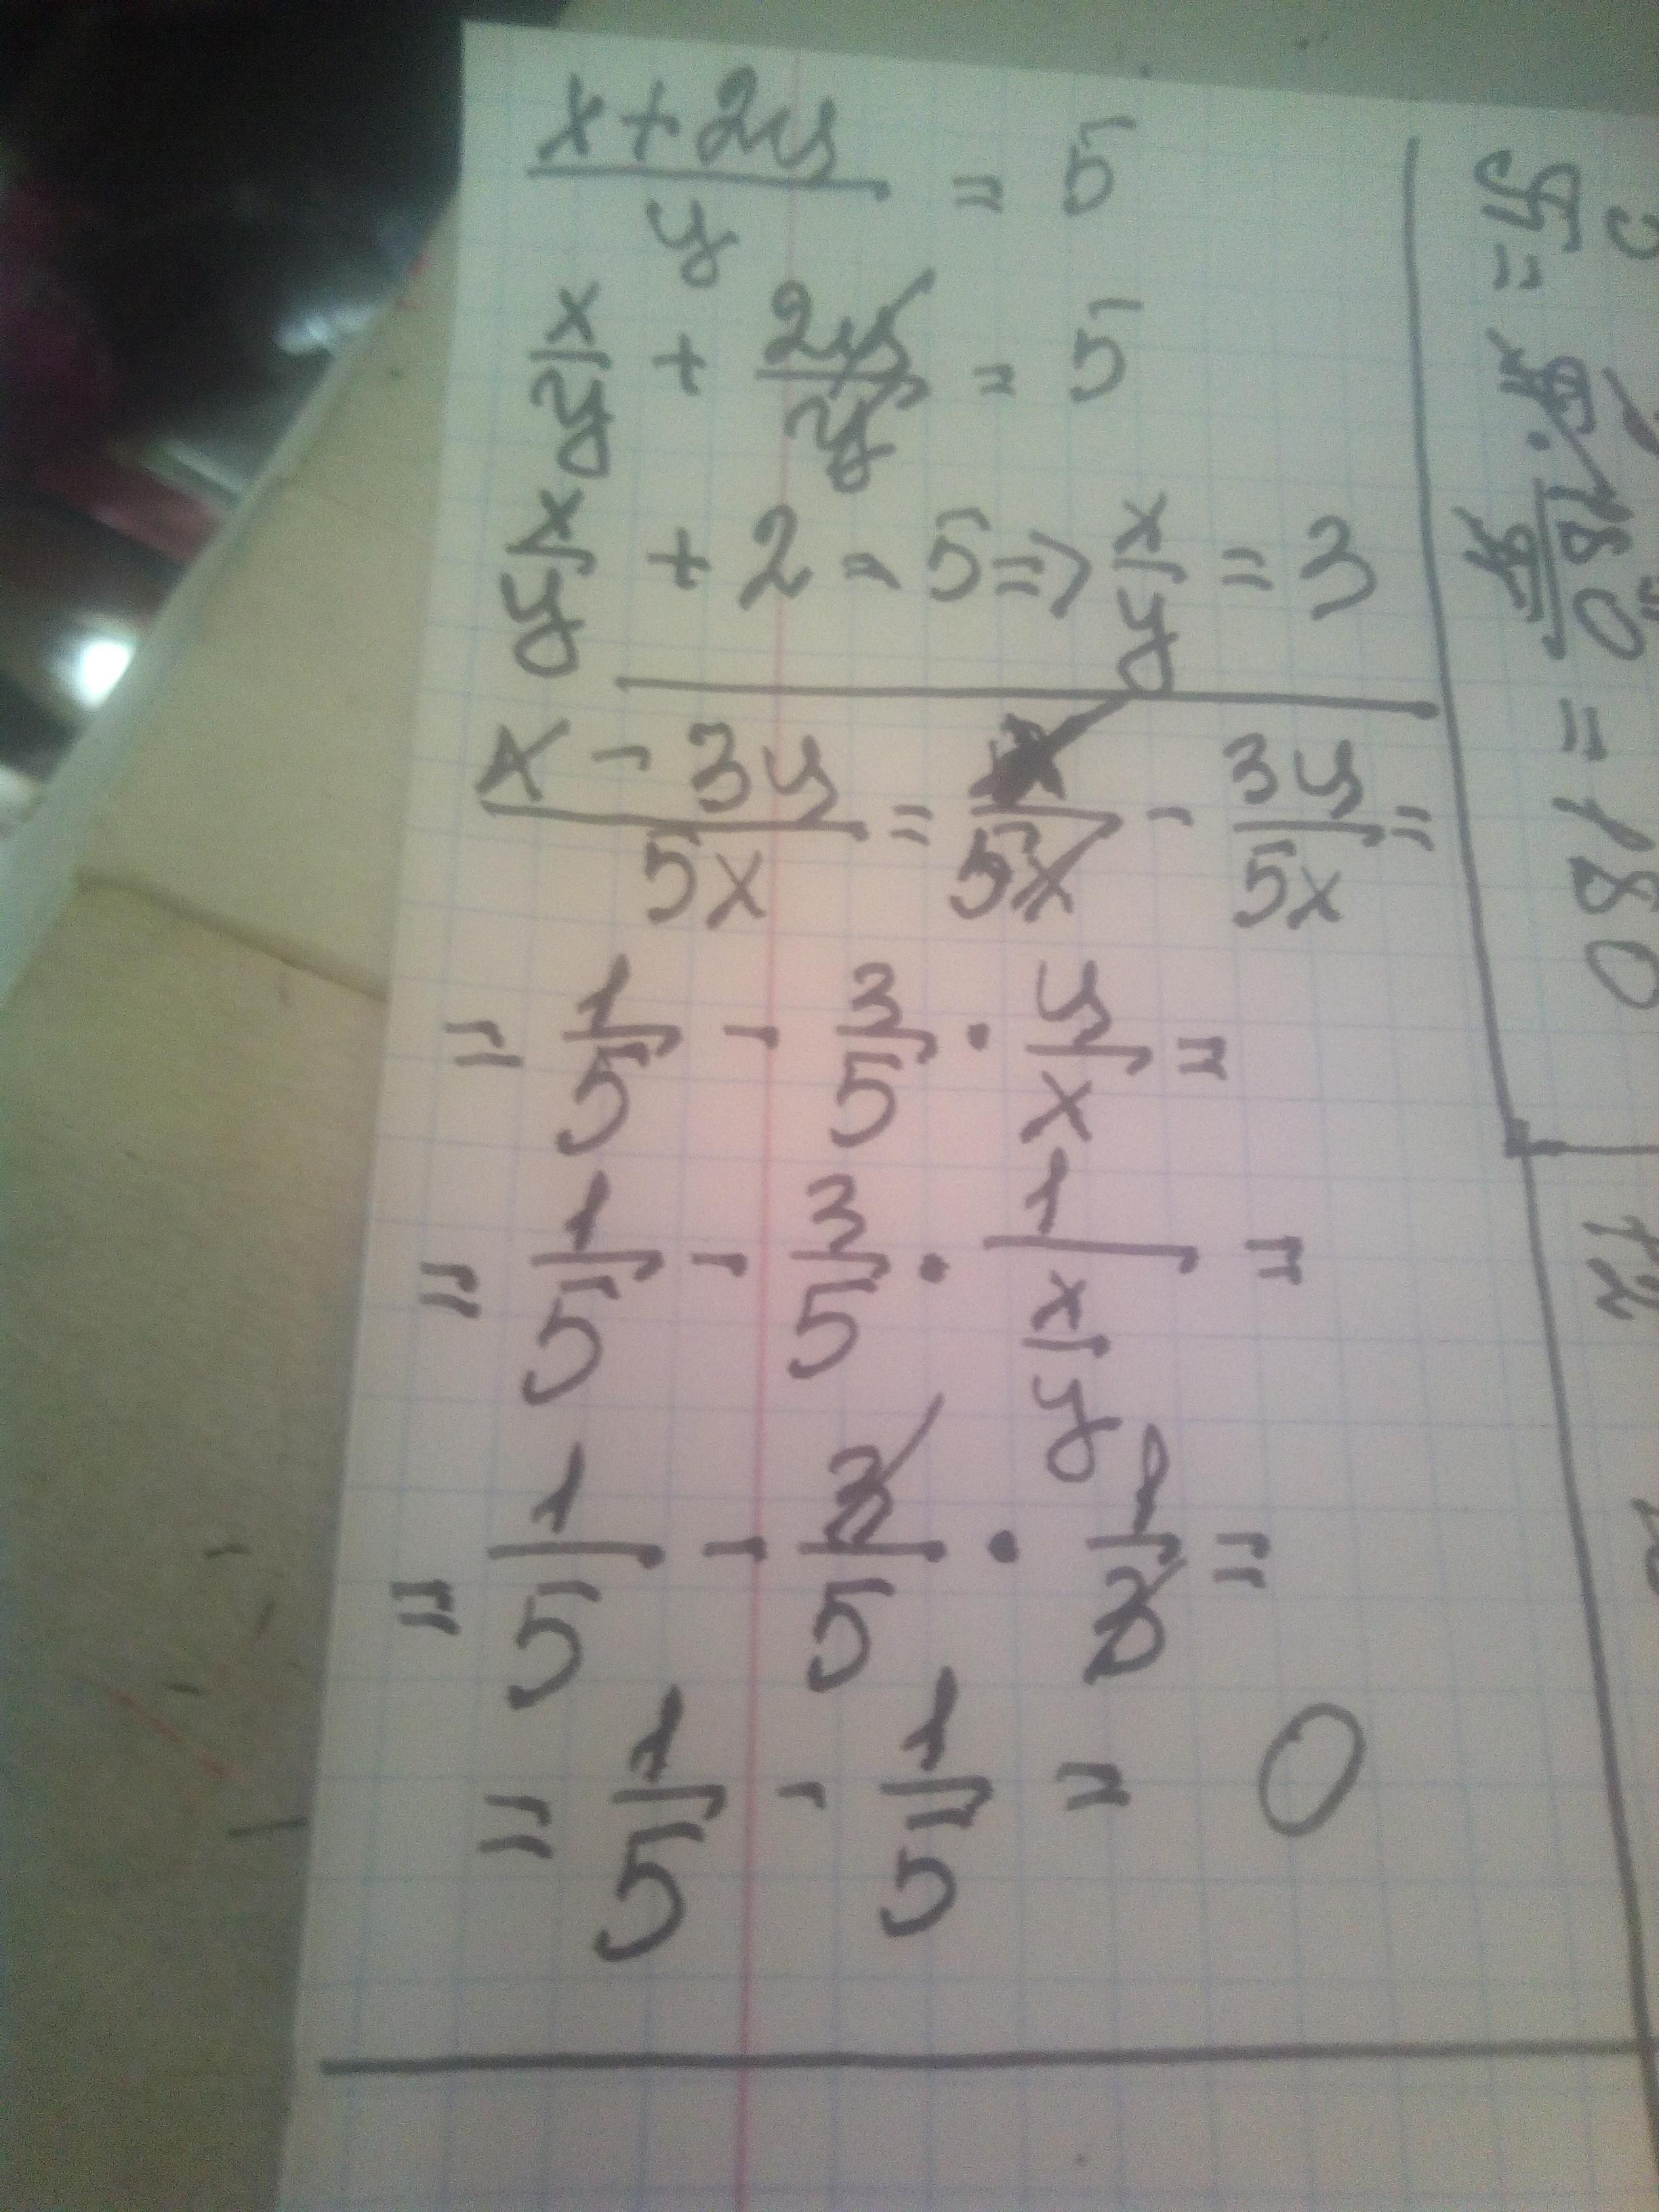 (x+2y)/y = 5
x/y + 2y/y = 5
x/y + 2 = 5 => x/y = 3
(x-3y)/5x = x/5x - 3y/5x =
= 1/5 - 3/5 · y/x =
= 1/5 - 3/5 · 1/(x/y) =
= 1/5 - 3/5 · 1/3 =
= 1/5 - 1/5 = 0
180 = 180
12